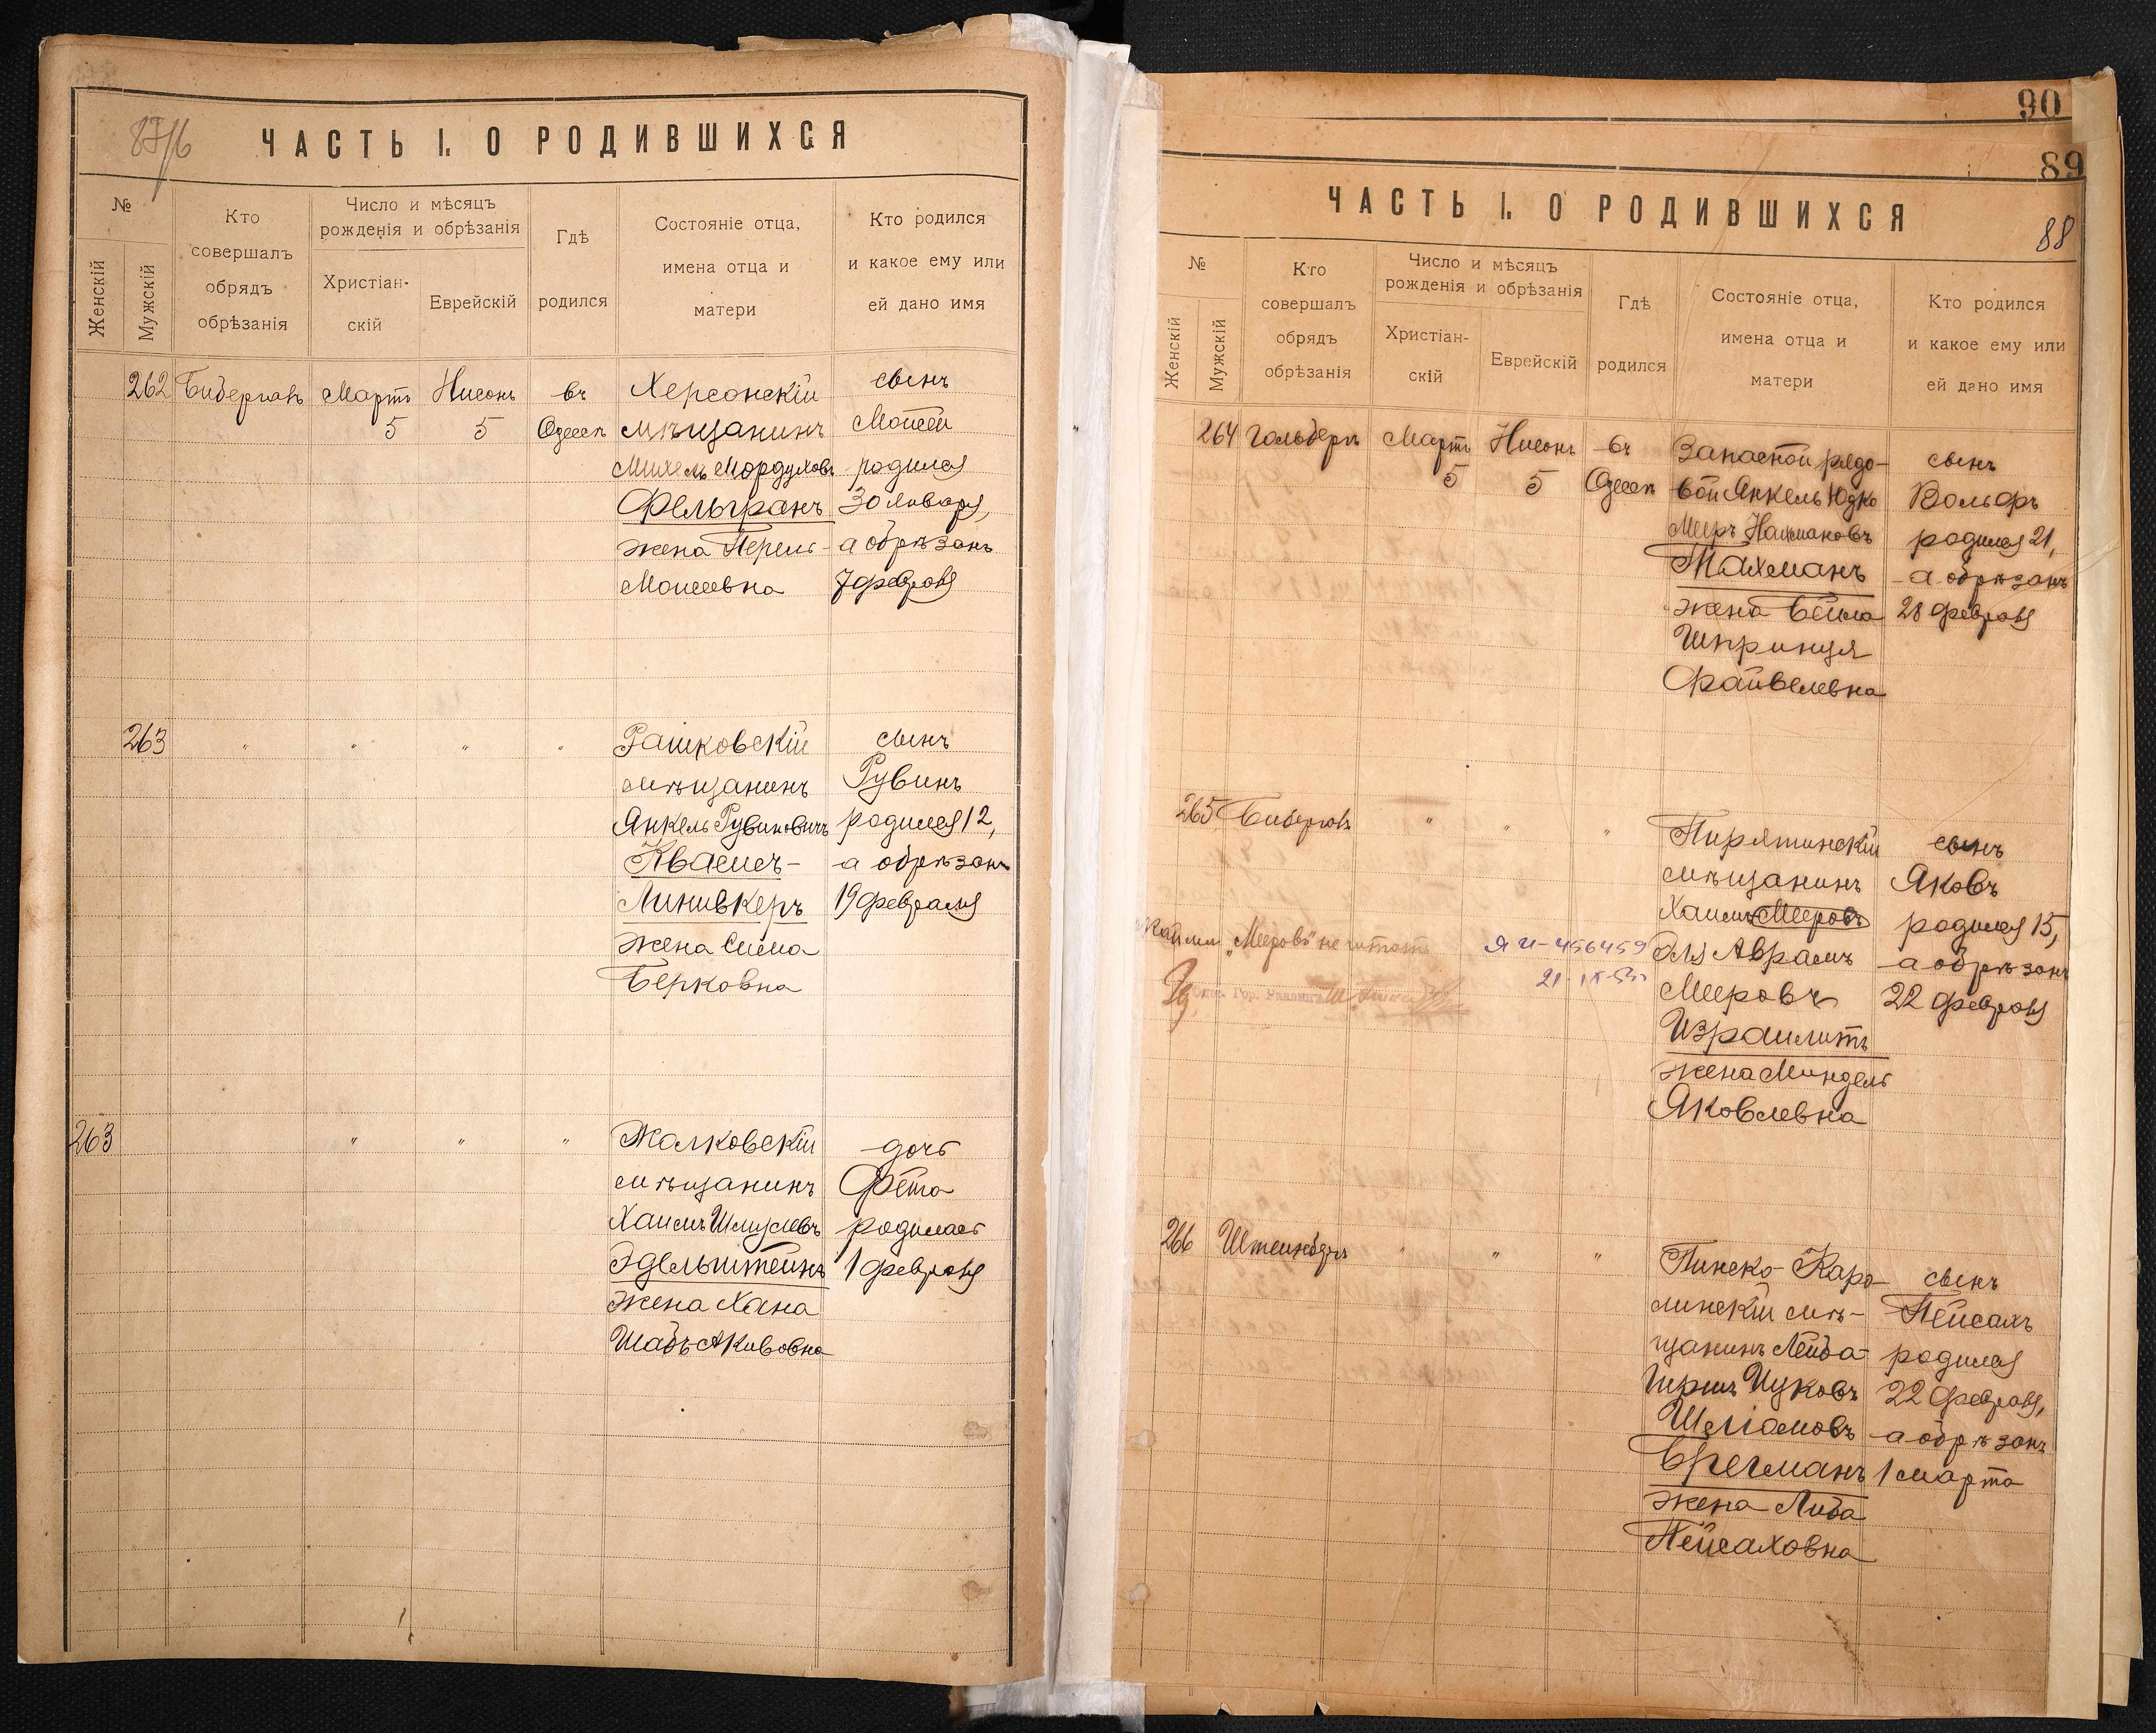 87/6
ЧАСТЬ I. О РОДИВШИХСЯ
№
Женскій
Мужскій
Кто
совершалъ
обрядъ
обрѣзанія
Число и мѣсяцъ
рожденія и обрѣзанія
Христіан-
скій
Еврейскій
Гдѣ
родился
Состояніе отца,
имена отца и
матери
Кто родился
и какое ему или
ей дано имя
262 Бибергалъ Мартъ Нисонъ въ Херсонскій сынъ
5 5 Одессѣ мѣщанинъ Моисей
Михель Мордуховъ родился
Фельгранъ 30 Января,
жена Перель а обрѣзанъ
Моисеевна 7 февраля
263 " " " " Рашковскій сынъ
мѣщанинъ Рувинъ
Янкель Рувиновичъ родился 12,
Квасисъ- а обрѣзанъ
Линивкеръ 19 февраля
жена Сима
Берковна
263 " " " Жалковскій дочь
мѣщанинъ Фета
Хаимъ Шмулевъ родилась
Эдельштейнъ 1 февраля
жена Хана
Шабъ Акивовна
90
89
88
ЧАСТЬ I. О РОДИВШИХСЯ
№
Женскій
Мужскій
Кто
совершалъ
обрядъ
обрѣзанія
Число и мѣсяцъ
рожденія и обрѣзанія
Христіан-
скій
Еврейскій
Гдѣ
родился
Состояніе отца,
имена отца и
матери
Кто родился
и какое ему или
ей дано имя
264 Гольберъ Мартъ Нисонъ въ Запасной рядо- сынъ
5 5 Одессѣ вой Янкель Юдко Вольфъ
Меиръ Нахмановъ родился 21,
Тахманъ а обрѣзанъ
жена Бейла 28 февраля
Шпринця
Файвелевна
265 Бибергалъ " " " Пирятинскій сынъ
мѣщанинъ Яковъ
Хаимъ Мееровъ родился 15,
"Мееровъ" не читать ЯИ-456459 Аврамъ а обрѣзанъ
21-IX Мееровъ 22 февраля
Израилитъ
жена Миндель
Яковлевна
266 Штейнберъ " " " Пинско-Каро- сынъ
линскій мѣ- Пейсахъ
щанинъ Лейба- родился
Гиршъ Ицковъ 22 февраля,
Шліомовъ а обрѣзанъ
Брегманъ 1 марта
жена Либа
Пейсаховна